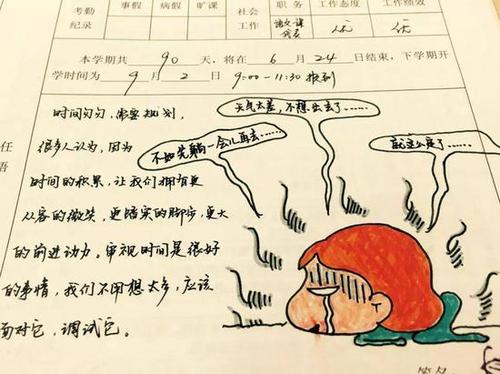 考勤 事假 病假 旷课 社会 职务 工作态度 工作绩效
纪录 工作 语文课 优 优
代表
本学期共 90 天,将在 6 月 24 日结束,下学期开
学时间为 9 月 2 日 9:00—11:30 报到
时间匆匆,需要规划,
很多人认为,因为
时间的积累,让我们拥有更
从容的微笑,更踏实的脚步,更大
的前进动力。审视时间是很好
的事情,我们不用想太多,应该
面对它,调试它。
任
语
不如先躺一会儿再去……
天气太差,不想出去了……
就这么定了……
签名